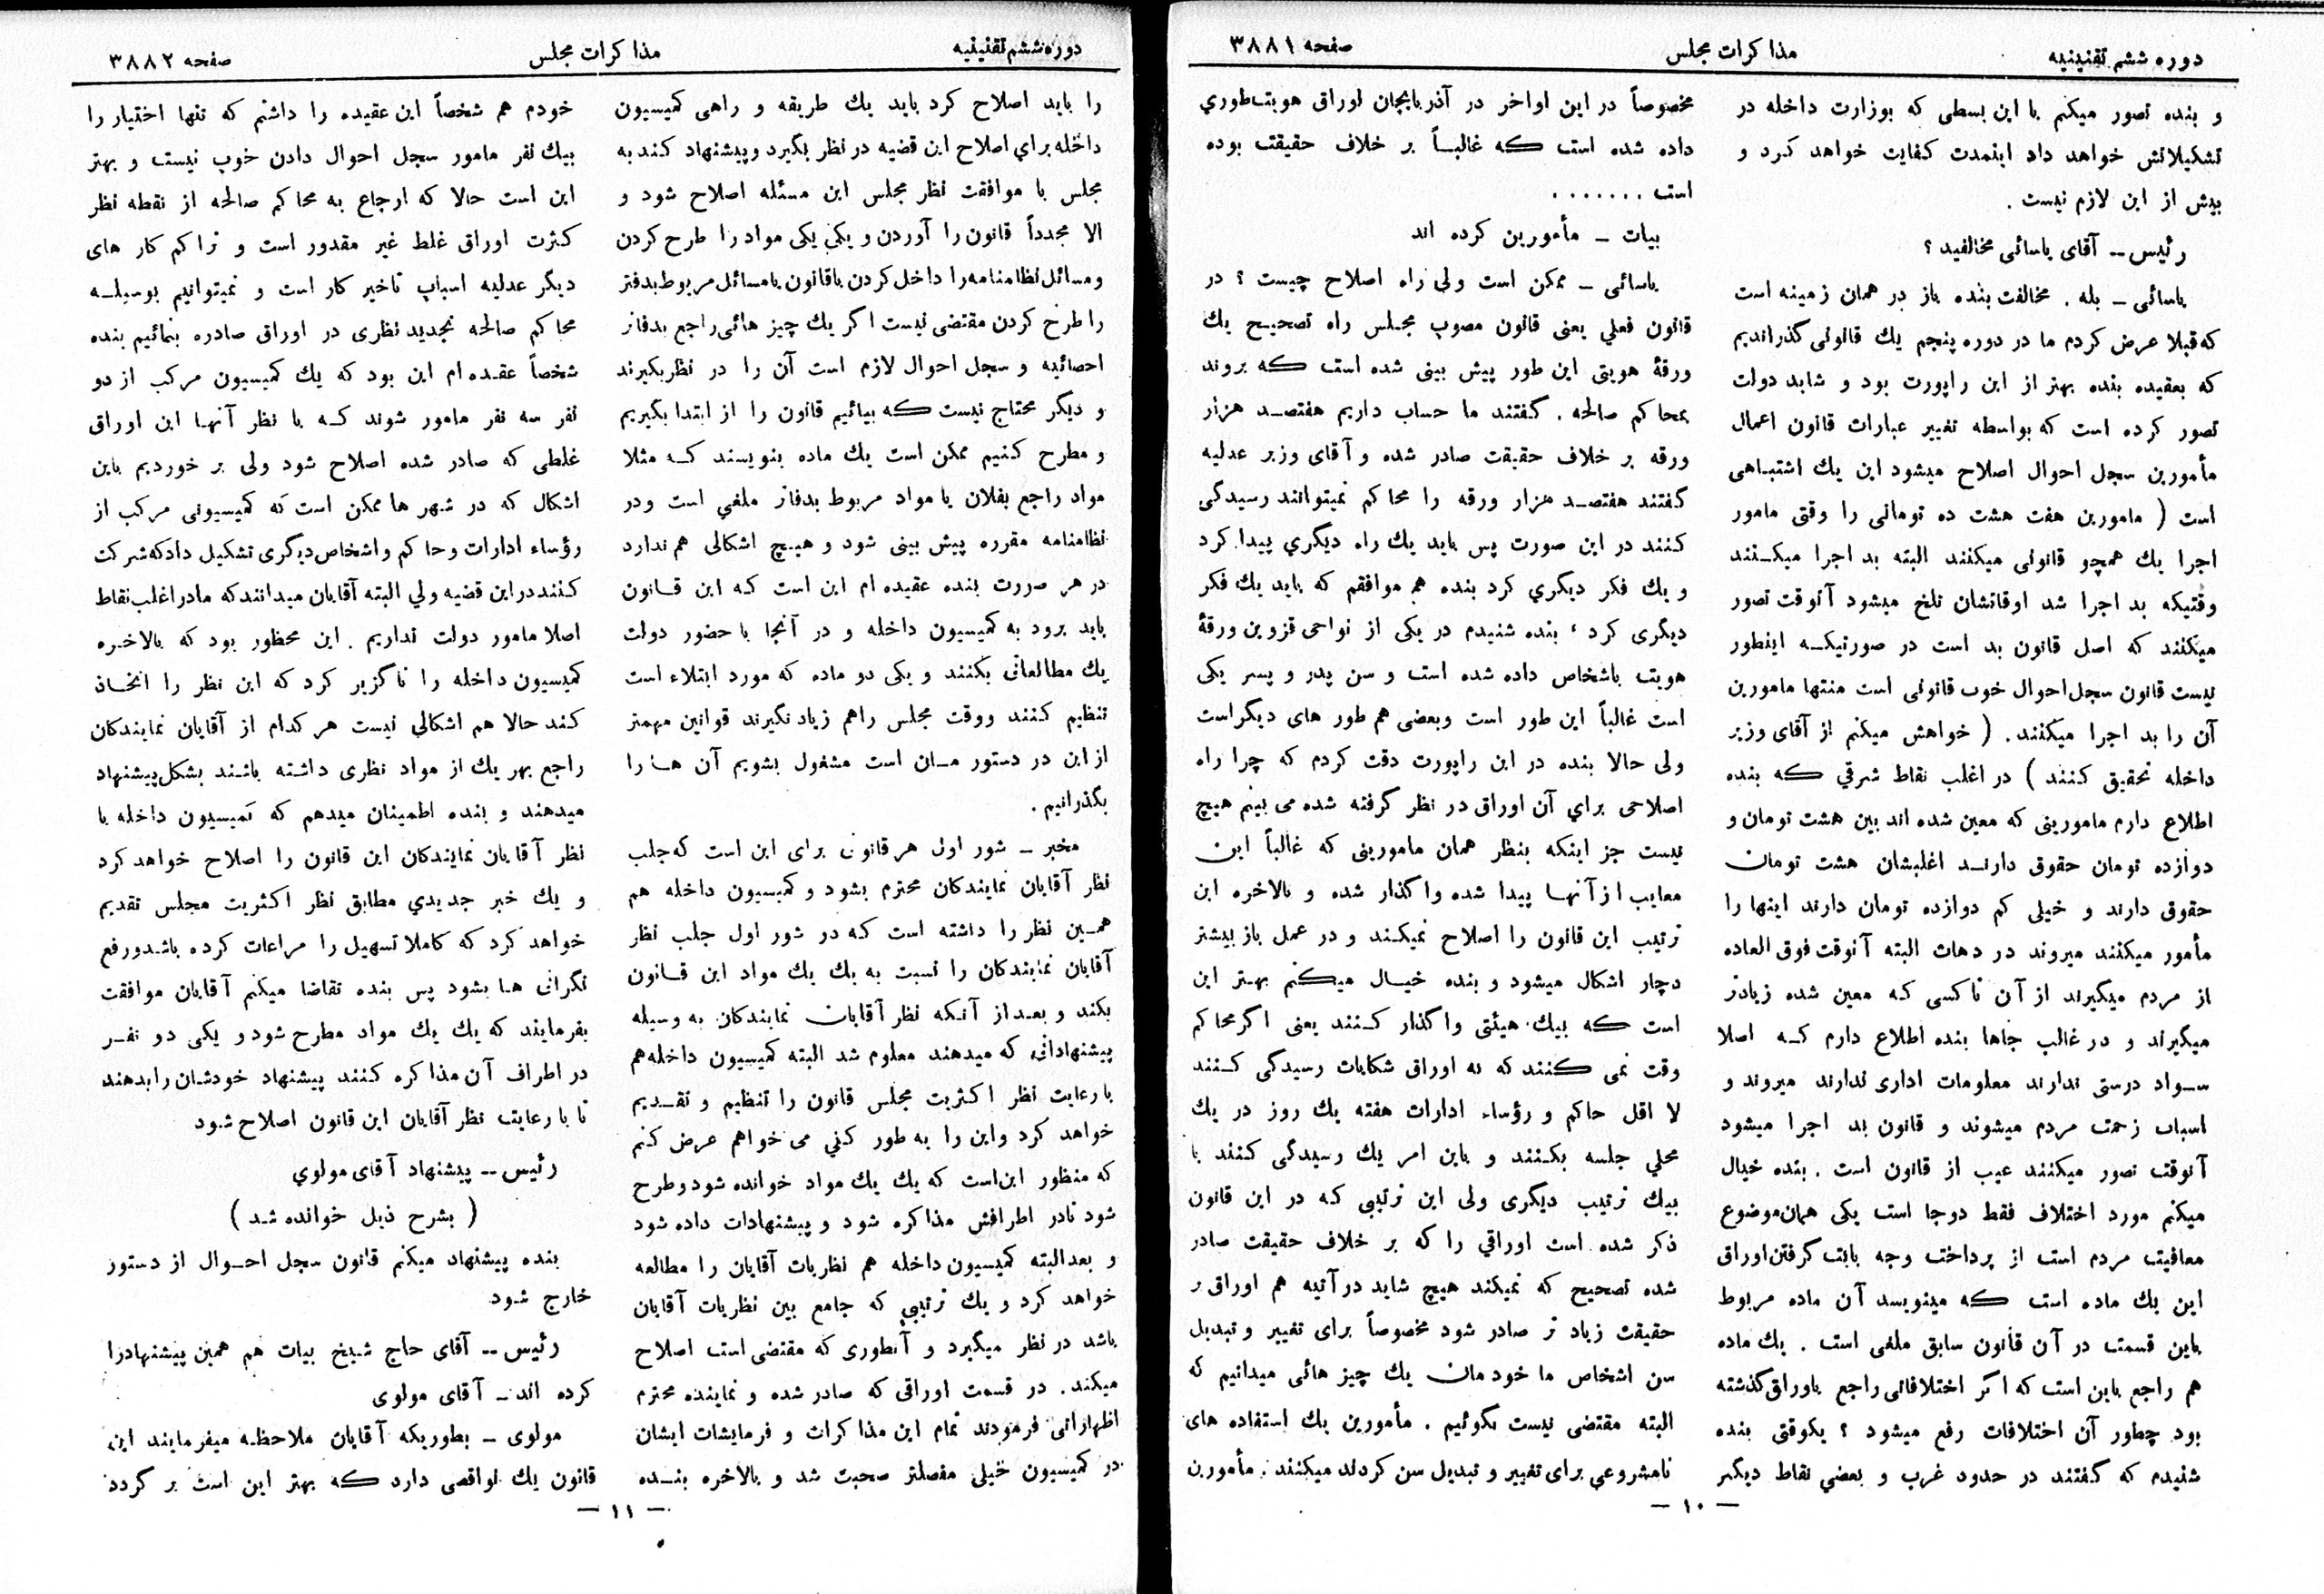 دوره ششم تقنینیه
مذاکرات مجلس
صفحه ۳۸۸۱
و بنده تصور میکنم با این بسطی که بوزارت داخله در
تشکیلاتش خواهد داد اینمدت کفایت خواهد کرد و
بیش از این لازم نیست .
رئیس -- آقای یاسائی مخالفید ؟
یاسائی - بله . مخالفت بنده باز در همان زمینه است
که قبلا عرض کردم ما در دوره پنجم یك قانونی گذراندیم
که بعقیده بنده بهتر از این راپورت بود و شاید دولت
تصور کرده است که بواسطه تغییر عبارات قانون اعمال
مأمورین سجل احوال اصلاح میشود این یك اشتباهی
است ( مامورین هفت هشت ده تومانی را وقتی مامور
اجرا یك همچو قانونی میکنند البته بد اجرا میکنند
وقتیکه بد اجرا شد اوقاتشان تلخ میشود آنوقت تصور
میکنند که اصل قانون بد است در صورتیکه اینطور
نیست قانون سجل احوال خوب قانونی است منتها مامورین
آن را بد اجرا میکنند . ( خواهش میکنم از آقای وزیر
داخله تحقیق کنند ) در اغلب نقاط شرقي که بنده
اطلاع دارم مامورینی که معین شده اند بین هشت تومان و
دوازده تومان حقوق دارند اغلبشان هشت تومان
حقوق دارند و خیلی کم دوازده تومان دارند اینها را
مأمور میکنند میروند در دهات البته آنوقت فوق العاده
از مردم میگیرند از آن تاکسی که معین شده زیادتر
میگیرند و در غالب جاها بنده اطلاع دارم که اصلا
سواد درستی ندارند معلومات اداری ندارند میروند و
اسباب زحمت مردم میشوند و قانون بد اجرا میشود
آنوقت تصور میکنند عیب از قانون است . بنده خیال
میکنم مورد اختلاف فقط دوجا است یکی همان موضوع
معافیت مردم است از پرداخت وجه بابت گرفتن اوراق
این یك ماده است که مینویسد آن ماده مربوط
باین قسمت در آن قانون سابق ملغی است . یك ماده
هم راجع باین است که اگر اختلافاتی راجع باوراق گذشته
بود چطور آن اختلافات رفع میشود ؟ یکوقتی بنده
شنیدم که گفتند در حدود غرب و بعضي نقاط دیگر
مخصوصاً در این اواخر در آذربایجان اوراق هویت طوري
داده شده است که غالباً بر خلاف حقیقت بوده
است . . . . . . .
بیات - مأمورین کرده اند
یاسائی - ممکن است ولی راه اصلاح چیست ؟ در
قانون فعلي یعنی قانون مصوب مجلس راه تصحیح یك
ورقهٔ هویتی این طور پیش بینی شده است که بروند
بمحاکم صالحه . گفتند ما حساب داریم هفتصد هزار
ورقه بر خلاف حقیقت صادر شده و آقای وزیر عدلیه
گفتند هفتصد هزار ورقه را محاکم نمیتوانند رسیدگی
کنند در این صورت پس باید یك راه دیگري پیدا کرد
و یك فکر دیگري کرد بنده هم موافقم که باید یك فکر
دیگری کرد ، بنده شنیدم در یکی از نواحی قزوین ورقهٔ
هویت باشخاص داده شده است و سن پدر و پسر یکی
است غالباً این طور است وبعضی هم طور های دیگر است
ولی حالا بنده در این راپورت دقت کردم که چرا راه
اصلاحی براي آن اوراق در نظر گرفته شده می بینم هیچ
نیست جز اینکه بنظر همان مامورینی که غالباً این
معایب از آنها پیدا شده واگذار شده و بالاخره این
ترتیب این قانون را اصلاح نمیکند و در عمل باز بیشتر
دچار اشکال میشود و بنده خیال میکنم بهتر این
است که بیك هیئتی واگذار کنند یعنی اگر محاکم
وقت نمی کنند که به اوراق شکایات رسیدگی کنند
لا اقل حاکم و رؤساء ادارات هفته یك روز در یك
محلي جلسه بکنند و باین امر یك رسیدگی کنند یا
بیك ترتیب دیگری ولی این ترتیبی که در این قانون
ذکر شده است اوراقي را که بر خلاف حقیقت صادر
شده تصحیح که نمیکند هیچ شاید در آتیه هم اوراق بر
حقیقت زیاد تر صادر شود مخصوصاً برای تغییر و تبدیل
سن اشخاص ما خودمان یك چیز هائی میدانیم که
البته مقتضی نیست بگوئیم . مأمورین یك استفاده های
نامشروعي برای تغییر و تبدیل سن کردند میکنند . مأمورین
- ۱۰ -
دوره ششم تقنینیه
مذاکرات مجلس
صفحه ۳۸۸۲
را باید اصلاح کرد باید یك طریقه و راهی کمیسیون
داخله براي اصلاح این قضیه در نظر بگیرد و پیشنهاد کند به
مجلس با موافقت نظر مجلس این مسئله اصلاح شود و
الا مجدداً قانون را آوردن و یکی یکی مواد را طرح کردن
و مسائل نظامنامه را داخل کردن با قانون یا مسائل مربوط بدفتر
را طرح کردن مقتضی نیست اگر یك چیز هائی راجع بدفاتر
احصائیه و سجل احوال لازم است آن را در نظر بگیرند
و دیگر محتاج نیست که بیائیم قانون را از ابتدا بگیریم
و مطرح کنیم ممکن است یك ماده بنویسند که مثلا
مواد راجع بفلان یا مواد مربوط بدفاتر ملغي است ودر
نظامنامه مقرره پیش بینی شود و هیچ اشکالی هم ندارد
در هر صورت بنده عقیده ام این است که این قانون
باید برود به کمیسیون داخله و در آنجا با حضور دولت
یك مطالعاتی بکنند و یکی دو ماده که مورد ابتلاء است
تنظیم کنند ووقت مجلس راهم زیاد نگیرند قوانین مهمتر
از این در دستور مان است مشغول بشویم آن ها را
بگذرانیم .
مخبر - شور اول هر قانون برای این است که جلب
نظر آقایان نمایندکان محترم بشود و کمیسیون داخله هم
همین نظر را داشته است که در شور اول جلب نظر
آقایان نمایندکان را نسبت به یك یك مواد این قانون
بکند و بعد از آنکه نظر آقایان نمایندکان به وسیله
پیشنهاداتی که میدهند معلوم شد البته کمیسیون داخله هم
با رعایت نظر اکثریت مجلس قانون را تنظیم و تقدیم
خواهد کرد واین را به طور کلي می خواهم عرض کنم
که منظور این است که یك یك مواد خوانده شود وطرح
شود تا در اطرافش مذاکره شود و پیشنهادات داده شود
و بعد البته کمیسیون داخله هم نظریات آقایان را مطالعه
خواهد کرد و یك ترتیبي که جامع بین نظریات آقایان
باشد در نظر میگیرد و آنطوری که مقتضی است اصلاح
میکند . در قسمت اوراقی که صادر شده و نماینده محترم
اظهاراتی فرمودند تمام این مذاکرات و فرمایشات ایشان
در کمیسیون خیلی مفصلتر صحبت شد و بالاخره بنده
خودم هم شخصاً این عقیده را داشتم که تنها اختیار را
بیك نفر مامور سجل احوال دادن خوب نیست و بهتر
این است حالا که ارجاع به محاکم صالحه از نقطه نظر
کثرت اوراق غلط غیر مقدور است و تراکم کار های
دیگر عدلیه اسباب تاخیر کار است و نمیتوانیم بوسیله
محاکم صالحه تجدید نظری در اوراق صادره بنمائیم بنده
شخصاً عقیده ام این بود که یك کمیسیون مرکب از دو
نفر سه نفر مامور شوند که با نظر آنها این اوراق
غلطی که صادر شده اصلاح شود ولی بر خوردیم باین
اشکال که در شهر ها ممکن است که کمیسیونی مرکب از
رؤساء ادارات و حاکم و اشخاص دیگری تشکیل داد که شرکت
کنند در این قضیه ولي البته آقایان میدانند که ما در اغلب نقاط
اصلا مامور دولت نداریم . این محظور بود که بالاخره
کمیسیون داخله را ناگزیر کرد که این نظر را اتخاذ
کند حالا هم اشکالی نیست هر کدام از آقایان نمایندکان
راجع بهر یك از مواد نظری داشته باشند بشکل پیشنهاد
میدهند و بنده اطمینان میدهم که کمیسیون داخله با
نظر آقایان نمایندکان این قانون را اصلاح خواهد کرد
و یك خبر جدیدي مطابق نظر اکثریت مجلس تقدیم
خواهد کرد که کاملا تسهیل را مراعات کرده باشد ورفع
نگرانی ها بشود پس بنده تقاضا میکنم آقایان موافقت
بفرمایند که یك یك مواد مطرح شود و یکی دو نفر
در اطراف آن مذاکره کنند پیشنهاد خودشان را بدهند
تا با رعایت نظر آقایان این قانون اصلاح شود
رئیس -- پیشنهاد آقای مولوي
( بشرح ذیل خوانده شد )
بنده پیشنهاد میکنم قانون سجل احوال از دستور
خارج شود
رئیس -- آقای حاج شیخ بیات هم همین پیشنهاد را
کرده اند - آقای مولوی
مولوی - بطوریکه آقایان ملاحظه میفرمایند این
قانون یك نواقصی دارد که بهتر این است بر گردد
- ۱۱ -